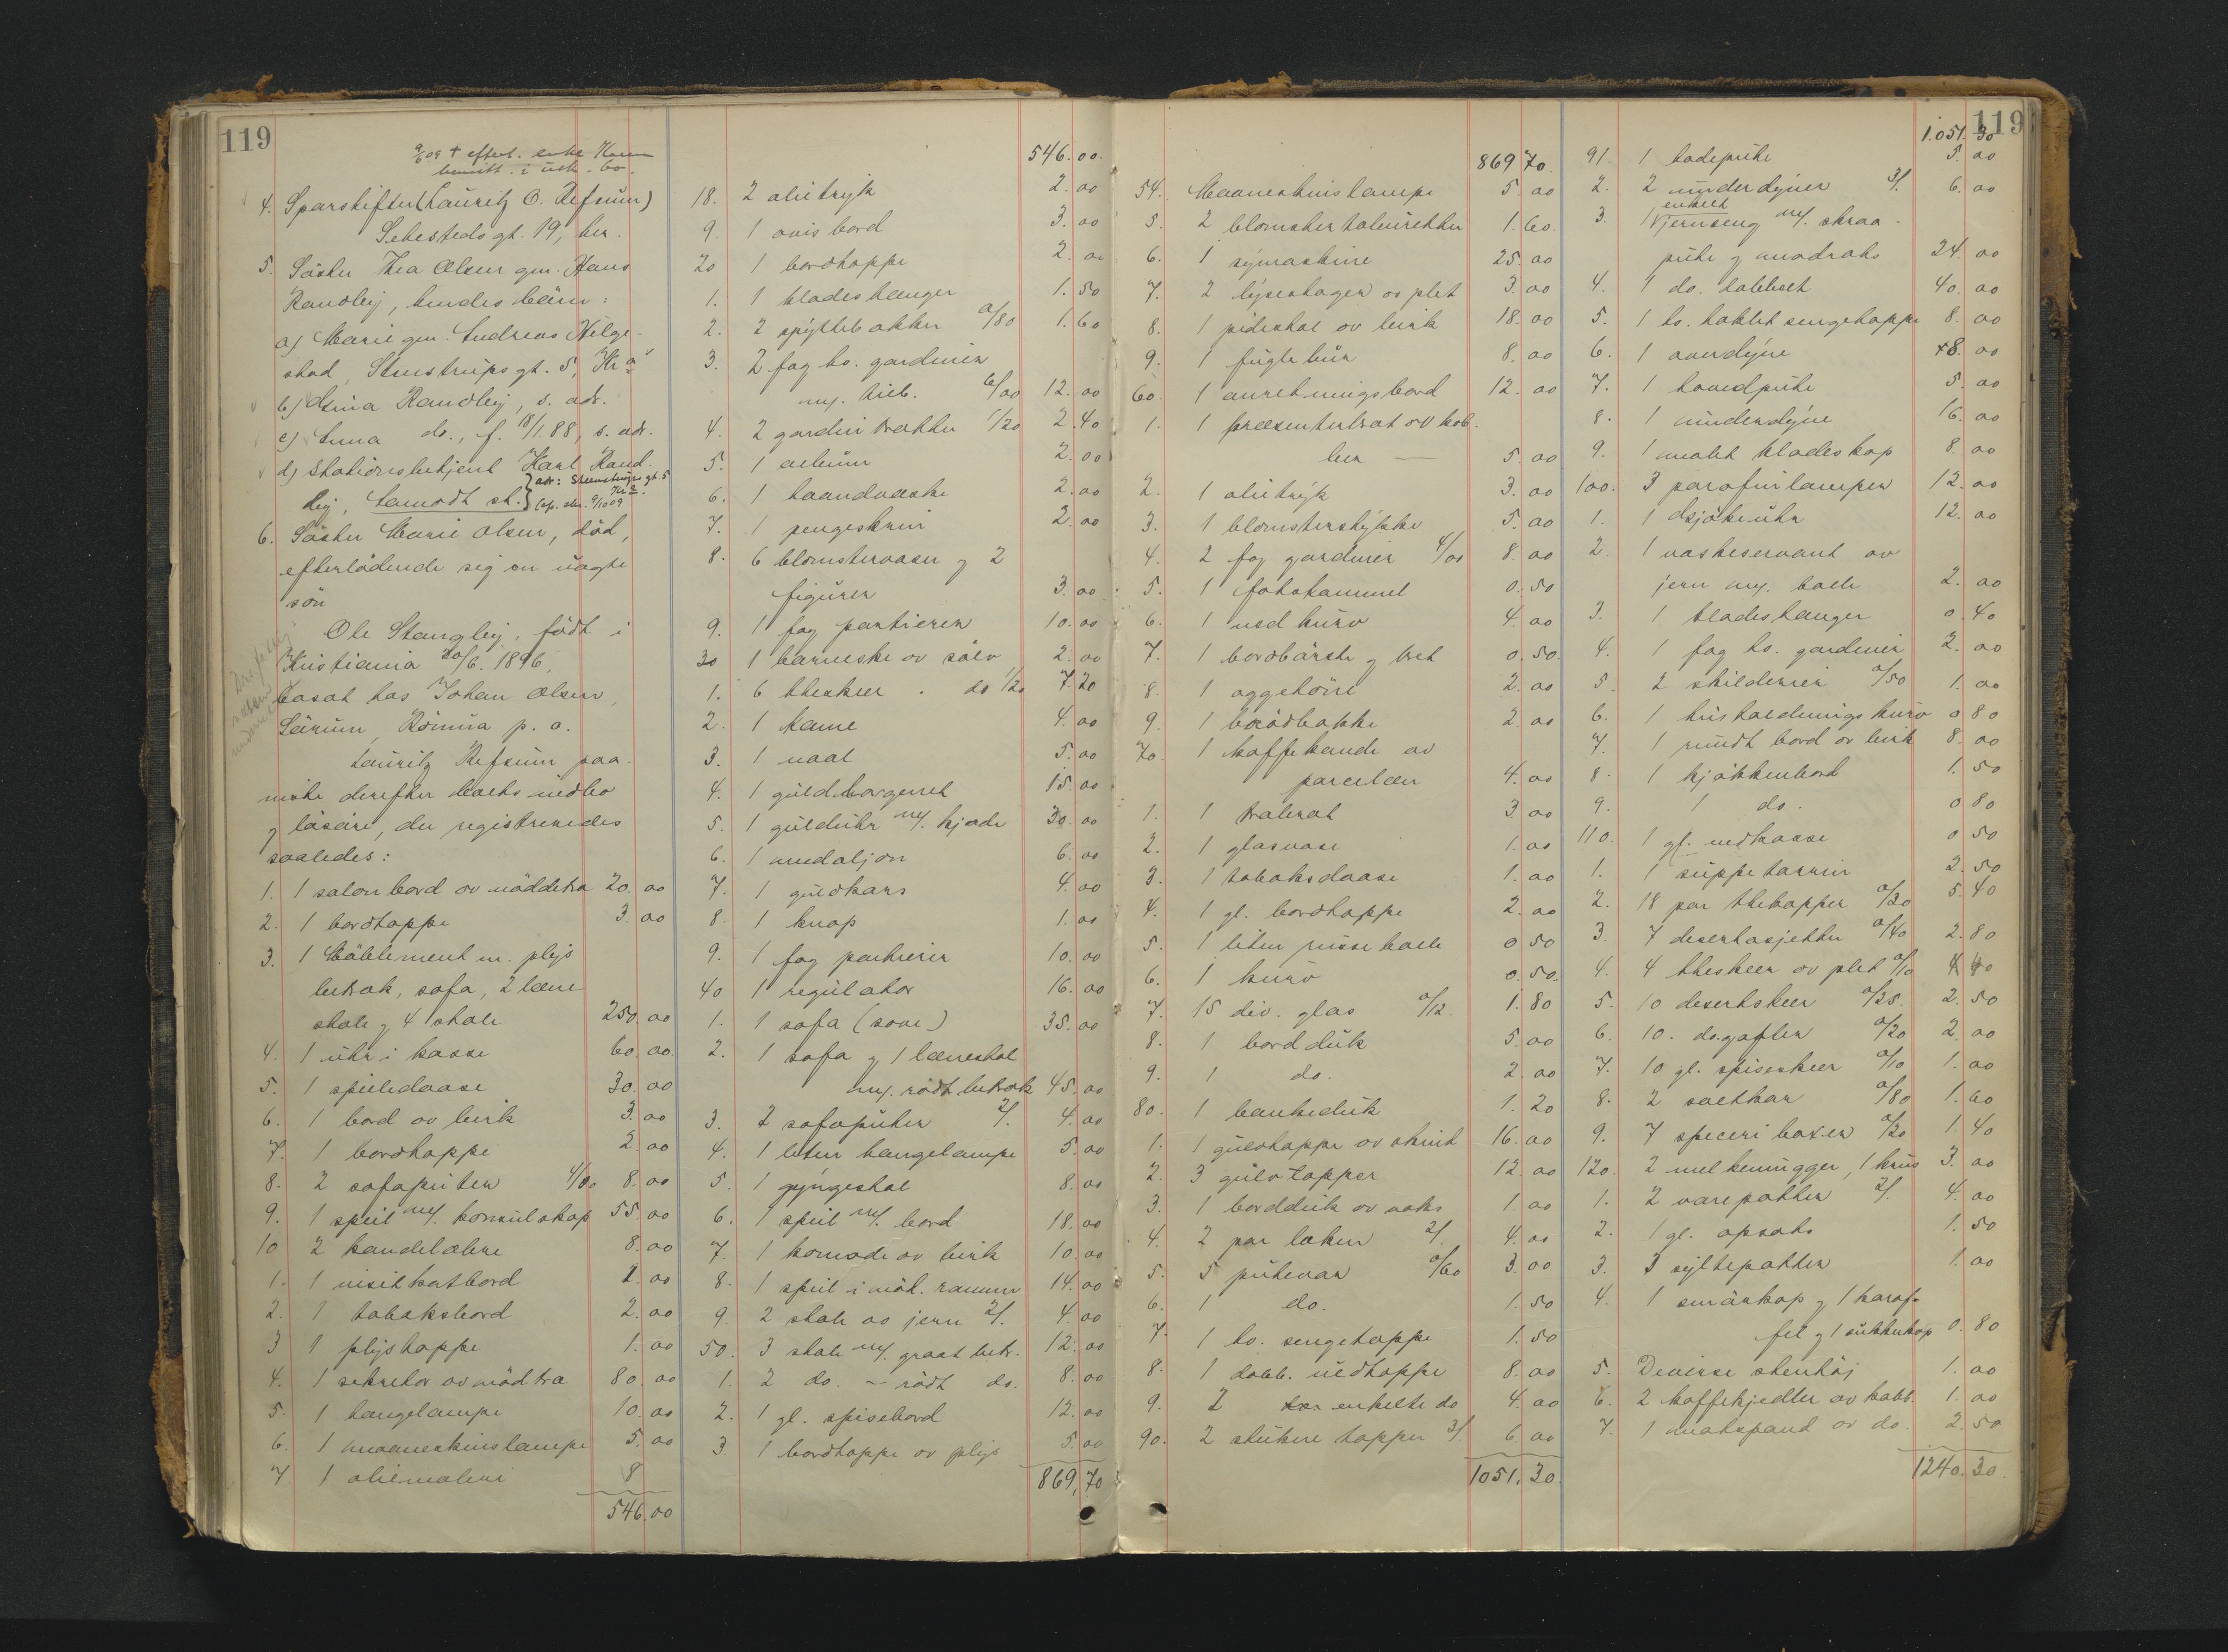 119
9/6 09 + efterl. enke Karen
bemitt. i usk. bo.
4. Sparskifter (Lauritz O. Refsum)
Sehesteds gt. 19, her.
5. Söster Thea Olsen gm. Hans
Randby, hendes börn:
a) Marie gm. Andreas Helge-
stad, Stenstrups gt. 5, Kr.a
b) Asina Randby, s. adr.
c) Anna do., f. 18/1 88, s. adr.
d) Stationsbetjent Karl Rand-
by, Lamodt st. } adr: Steenstrups gt. 5 Kr.a
6. Söster Marie Olsen, död,
efterladende sig en uægte
sön
Ole Stangby, födt i
Kristiania 20/6. 1896,
bosat hos Johan Olsen,
Sörum, Römua p. o.
Lauritz Refsum paa-
viste derefter boets indbo
og lösöre, der registreredes
saaledes:
1. 1 salonbord av nöddetræ 20.00
2. 1 bordtæppe 3.00
3. 1 Möblement m. plys
betræk, sofa, 2 læne
stole og 4 stole 250.00
4. 1 uhr i kasse 60.00
5. 1 spilledaase 30.00
6. 1 bord av birk 3.00
7. 1 bordtæppe 2.00
8. 2 sofaputer 4/00 8.00
9. 1 speil m/. konsulskap 55.00
10 2 kandelabre 8.00
1. 1 visitkortbord 2.00
2. 1 tobaksbord 2.00
3 1 plystæppe 1.00
4. 1 sekretær av nödtræ 80.00
5. 1 hængelampe 10.00
6. 1 maaneskinslampe 5.00
7. 1 oliemaleri 8
546.00
546.00
18. 2 olietryk 2.00
9. 1 avisbord 3.00
20 1 bordtæppe 2.00
1. 1 klædeshænger 1.50
2. 2 spyttebakker 0/80 1.60
3. 2 fag hv. gardiner
m/. tilb. 6/00 12.00
4. 2 gardin brætter 1/20 2.40
5. 1 album 2.00
6. 1 haandvæske 2.00
7. 1 pengeskrin 2.00
8. 6 blomstervaser og 2
figurer 3.00
9. 1 fag portierer 10.00
30 1 barneske av sölv 2.00
1. 6 theskeer . do 1/20 7.20
2. 1 kame 4.00
3. 1 naal 5.00
4. 1 guldborgenet 15.00
5. 1 gulduhr m/. kjæde 30.00
6. 1 medaljon 6.00
7. 1 guldkors 4.00
8. 1 knap 1.00
9. 1 fag portierer 10.00
40 1 regulator 16.00
1. 1 sofa (sove) 35.00
2. 1 sofa og 1 lænestol
m/. rödt betræk 45.00
3. 2 sofaputer 2/. 4.00
4. 1 liten hængelampe 5.00
5. 1 gyngestol 8.00
6. 1 speil m/. bord 18.00
7. 1 komode av birk 10.00
8. 1 speil i nöd. ramme 14.00
9. 2 stole av jern 2/. 4.00
50. 3 stole m/. graat betr. 12.00
1. 2 do. - rödt do. 8.00
2. 1 gl. spisebord 12.00
3 1 bordtæppe av plys 5.00
869,70
869 70
54. Maaneskinslampe 5.00
5. 2 blomstertabouretter 1.60
6. 1 symaskine 25.00
7. 2 lysestager av plet 3.00
8. 1 pidestal av birk 18.00
9. 1 fuglebur 8.00
60. 1 anretningsbord 12.00
1. 1 præsenterbræt av kob-
ber — 5.00
2. 1 olietryk 3.00
3. 1 blomsterstykke 5.00
4. 2 fag gardiner 4/00 8.00
5. 1 fotokammel 0.50
6. 1 vedkurv 4.00
7. 1 bordbörste og bret 0.50
8. 1 æggehöne 2.00
9. 1 brödbakke 2.00
70. 1 kaffekande av
porcelæn 4.00
1. 1 tralerat 3.00
2. 1 glasvase 1.00
3. 1 tobaksdaase 1.00
4. 1 gl. bordtæppe 2.00
5. 1 liten punse bolle 0.50
6. 1 kurv 0.50
7. 15 div. glas 0/12. 1.80
8. 1 bordduk 5.00
9. 1 do. 2.00
80. 1 bænkeduk 1.20
1. 1 gulvtæppe av skind 16.00
2. 3 gulvtæpper 12.00
3. 1 bordduk av voks 1.00
4. 2 par laken 2/. 4.00
5. 5 putevar 0/60 3.00
6. 1 do. 1.50
7. 1 hv. sengetæppe 1.50
8. 1 dobb. uldtæppe 8.00
9. 2 enkelte do 4.00
90. 2 stukne tæpper 3/. 6.00
1051.30
119
1.051.30
91. 1 hodepute 5.00
2. 2 underdyner 3/. 6.00
3. 1 enkelt jernseng m/. skraa-
pute og madraks 24.00
4. 1 do. dobbelt 40.00
5. 1 hv. heklet sengetæppe 8.00
6. 1 overdyne 8.00
7. 1 hovedpute 5.00
8. 1 underdyne 16.00
9. 1 malet klædeskap 8.00
100. 3 parafinlamper 12.00
1. 1 dsjökeuhr 12.00
2. 1 vaskeservant av
jern m/. bolle 2.00
3. 1 klædeshænger 0.40
4. 1 fag hv. gardiner 2.00
5 2 skilderier 0/50 1.00
6. 1 husholdningskurv 0.80
7. 1 rundt bord av birk 8.00
8. 1 kjökkenbord 1.50
9. 1 do. 0.80
110. 1 gl. vedkasse 0.50
1. 1 suppeterrin 2.50
2. 18 par thekopper 0/30 5.40
3. 7 desertasjetter 0/40 2.80
4. 4 theskeer av plet 0/10 .40
5. 10 desertskeer 0/25. 2.50
6. 10. do. gafler 0/20 2.00
7. 10 gl. spiseskeer 0/10 1.00
8. 2 saltkar 0/80 1.60
9. 7 speceri bokser 0/20 1.40
120. 2 melkemugger, 1 krus 3.00
1. 2 vasepotter 2/. 4.00
2. 1 gl. opsats 1.50
3. 3 syltepotter 1.00
4. 1 smörkop og 1 karaf-
fel og 1 sukkerkop 0.80
5. Diverse stentöj 1.00
6. 2 kaffekjedler av kobb. 1.00
7. 1 matspand av do. 2.50
1240.30